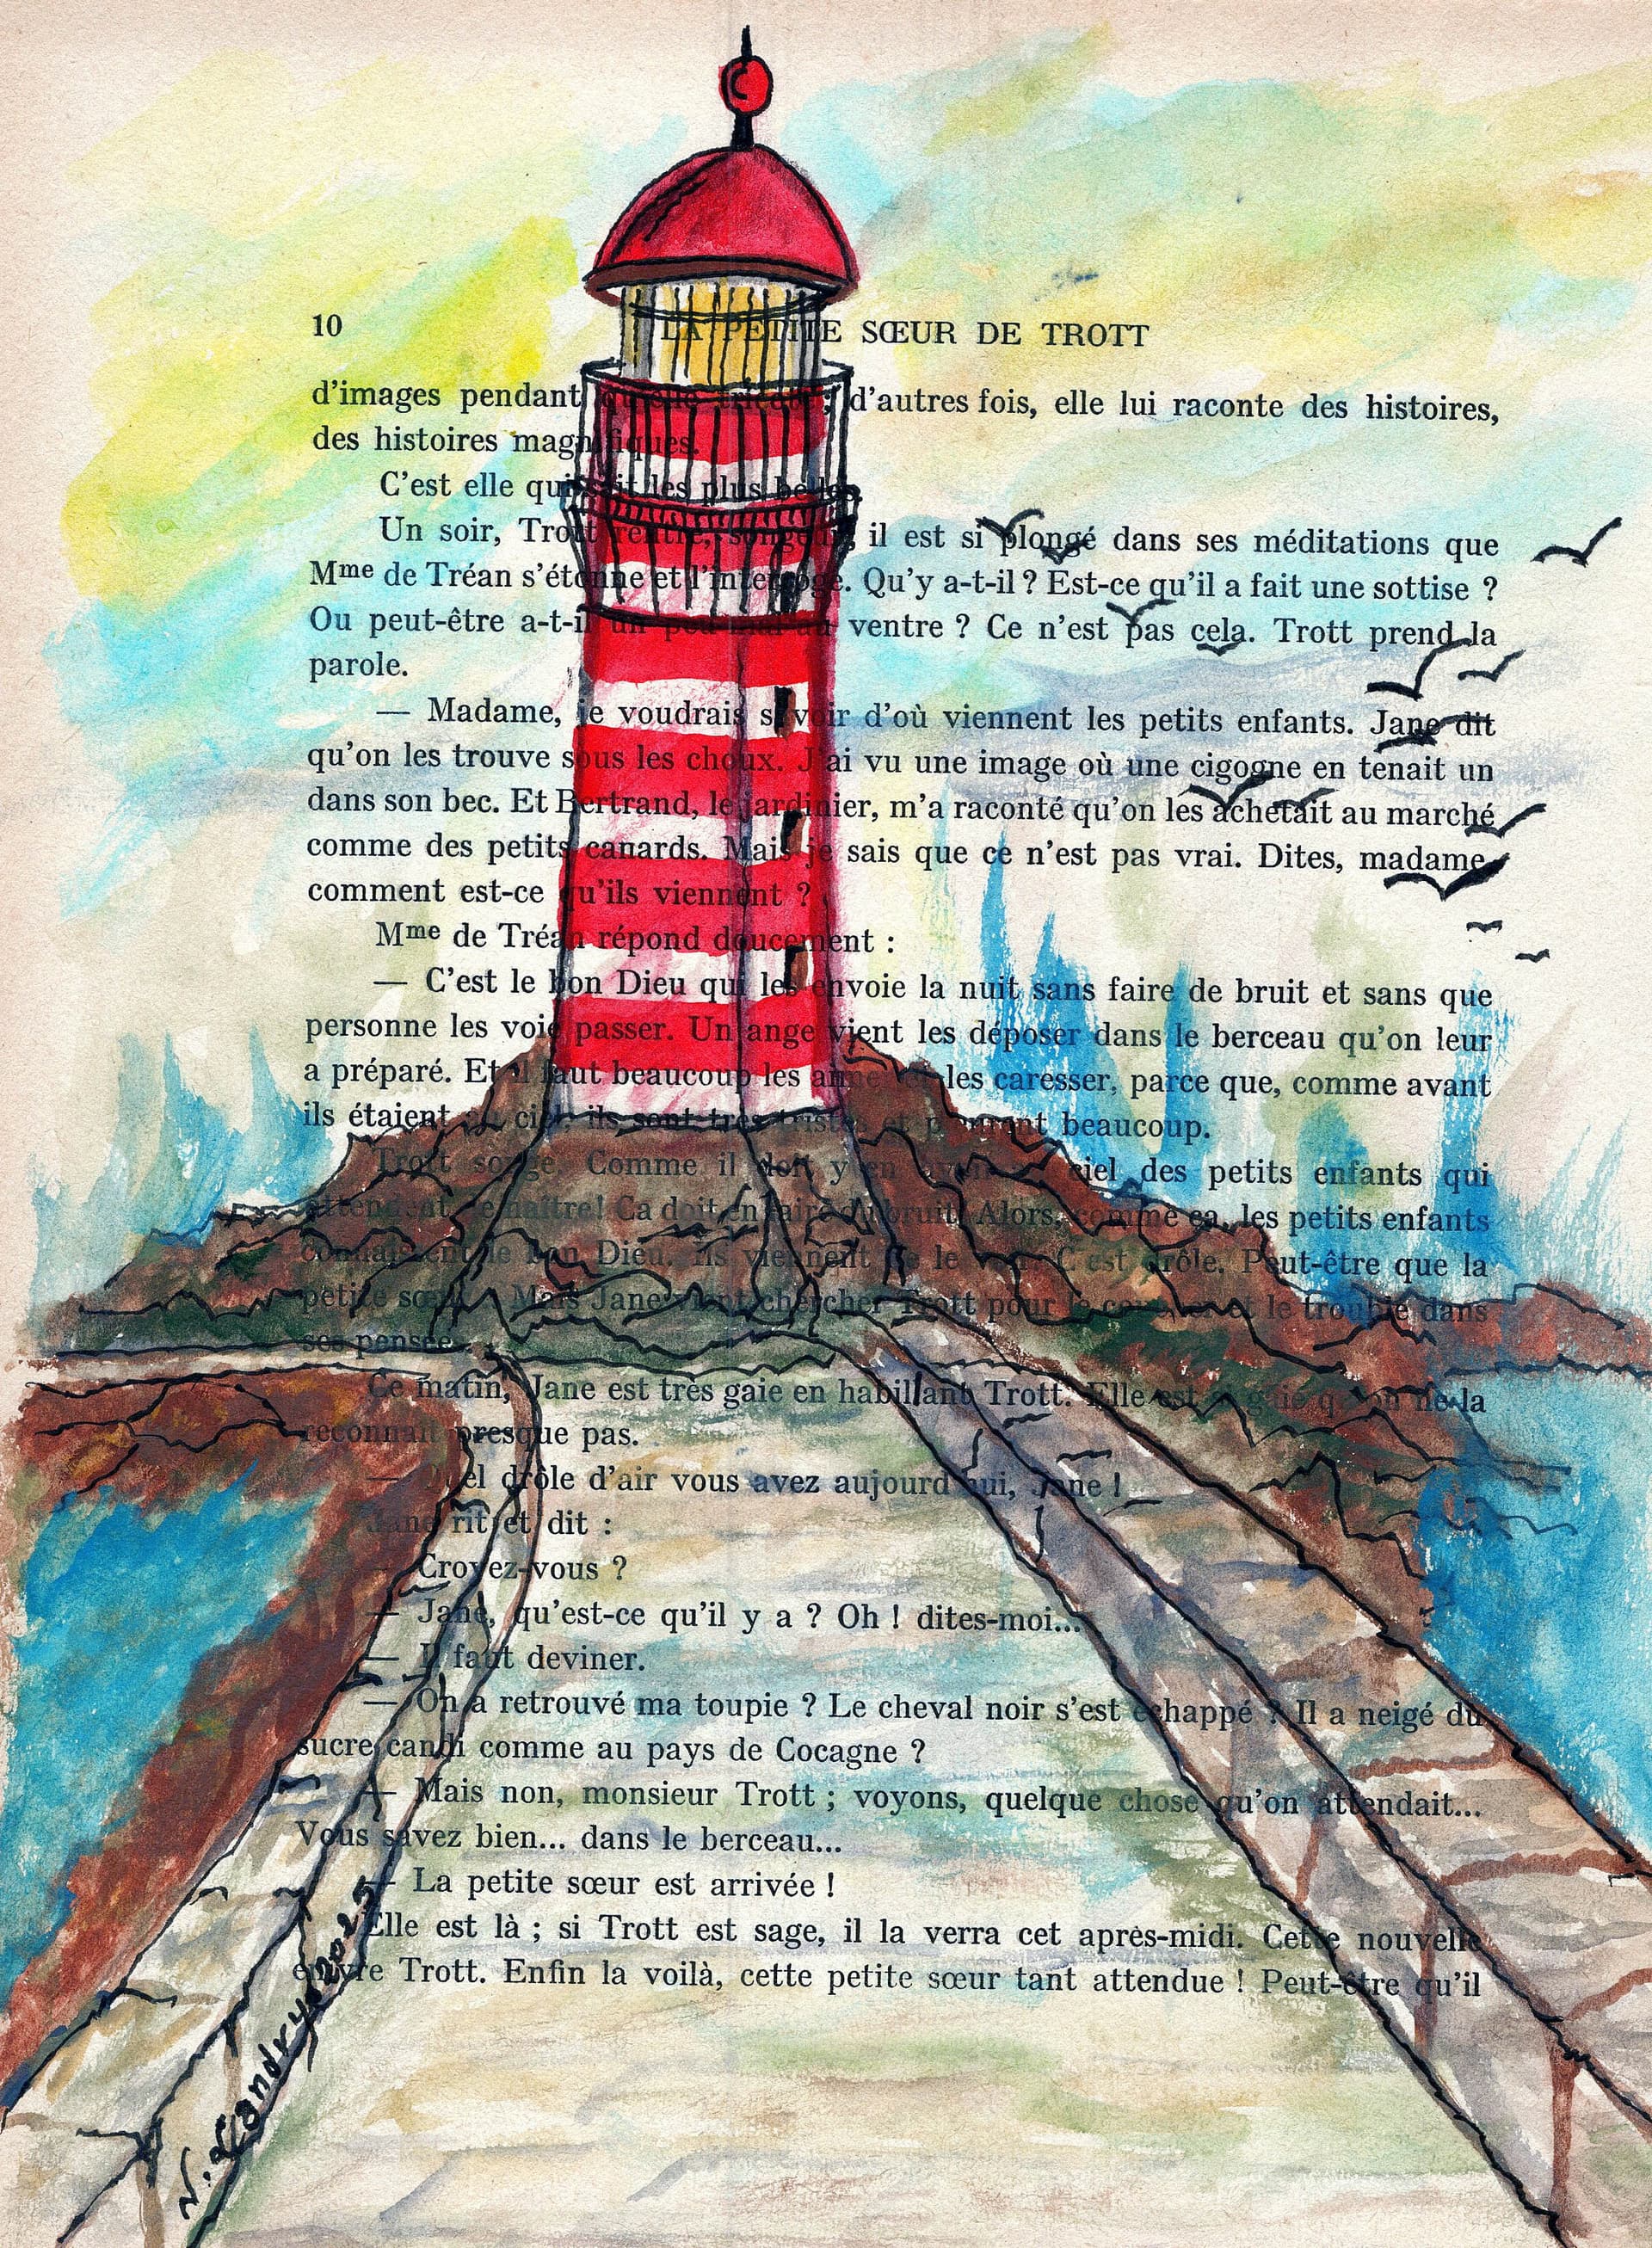 10 LA PETITE SŒUR DE TROTT
d'images pendant qu'elle tricote ; d'autres fois, elle lui raconte des histoires,
des histoires magnifiques.
C'est elle qui sait les plus belles.
Un soir, Trott rentre, songeur, il est si plongé dans ses méditations que
Mme de Tréan s'étonne et l'interroge. Qu'y a-t-il ? Est-ce qu'il a fait une sottise ?
Ou peut-être a-t-il un peu mal au ventre ? Ce n'est pas cela. Trott prend la
parole.
— Madame, je voudrais savoir d'où viennent les petits enfants. Jane dit
qu'on les trouve sous les choux. J'ai vu une image où une cigogne en tenait un
dans son bec. Et Bertrand, le jardinier, m'a raconté qu'on les achetait au marché
comme des petits canards. Mais je sais que ce n'est pas vrai. Dites, madame,
comment est-ce qu'ils viennent ?
Mme de Tréan répond doucement :
— C'est le bon Dieu qui les envoie la nuit sans faire de bruit et sans que
personne les voie passer. Un ange vient les déposer dans le berceau qu'on leur
a préparé. Et il faut beaucoup les aimer et les caresser, parce que, comme avant
ils étaient au ciel, ils sont très tristes et pleurent beaucoup.
Trott songe. Comme il doit y en avoir au ciel des petits enfants qui
attendent de naître! Ça doit en faire du bruit! Alors, comme ça, les petits enfants
connaissent le bon Dieu. Ils viennent de le voir. C'est drôle. Peut-être que la
petite sœur... Mais Jane vient chercher Trott pour le coucher et le trouble dans
ses pensées.
Ce matin, Jane est très gaie en habillant Trott. Elle est si gaie qu'on ne la
reconnaît presque pas.
— Quel drôle d'air vous avez aujourd'hui, Jane !
Jane rit et dit :
— Croyez-vous ?
— Jane, qu'est-ce qu'il y a ? Oh ! dites-moi...
— Il faut deviner.
— On a retrouvé ma toupie ? Le cheval noir s'est échappé ? Il a neigé du
sucre candi comme au pays de Cocagne ?
— Mais non, monsieur Trott ; voyons, quelque chose qu'on attendait...
Vous savez bien... dans le berceau...
— La petite sœur est arrivée !
Elle est là ; si Trott est sage, il la verra cet après-midi. Cette nouvelle
enivre Trott. Enfin la voilà, cette petite sœur tant attendue ! Peut-être qu'il